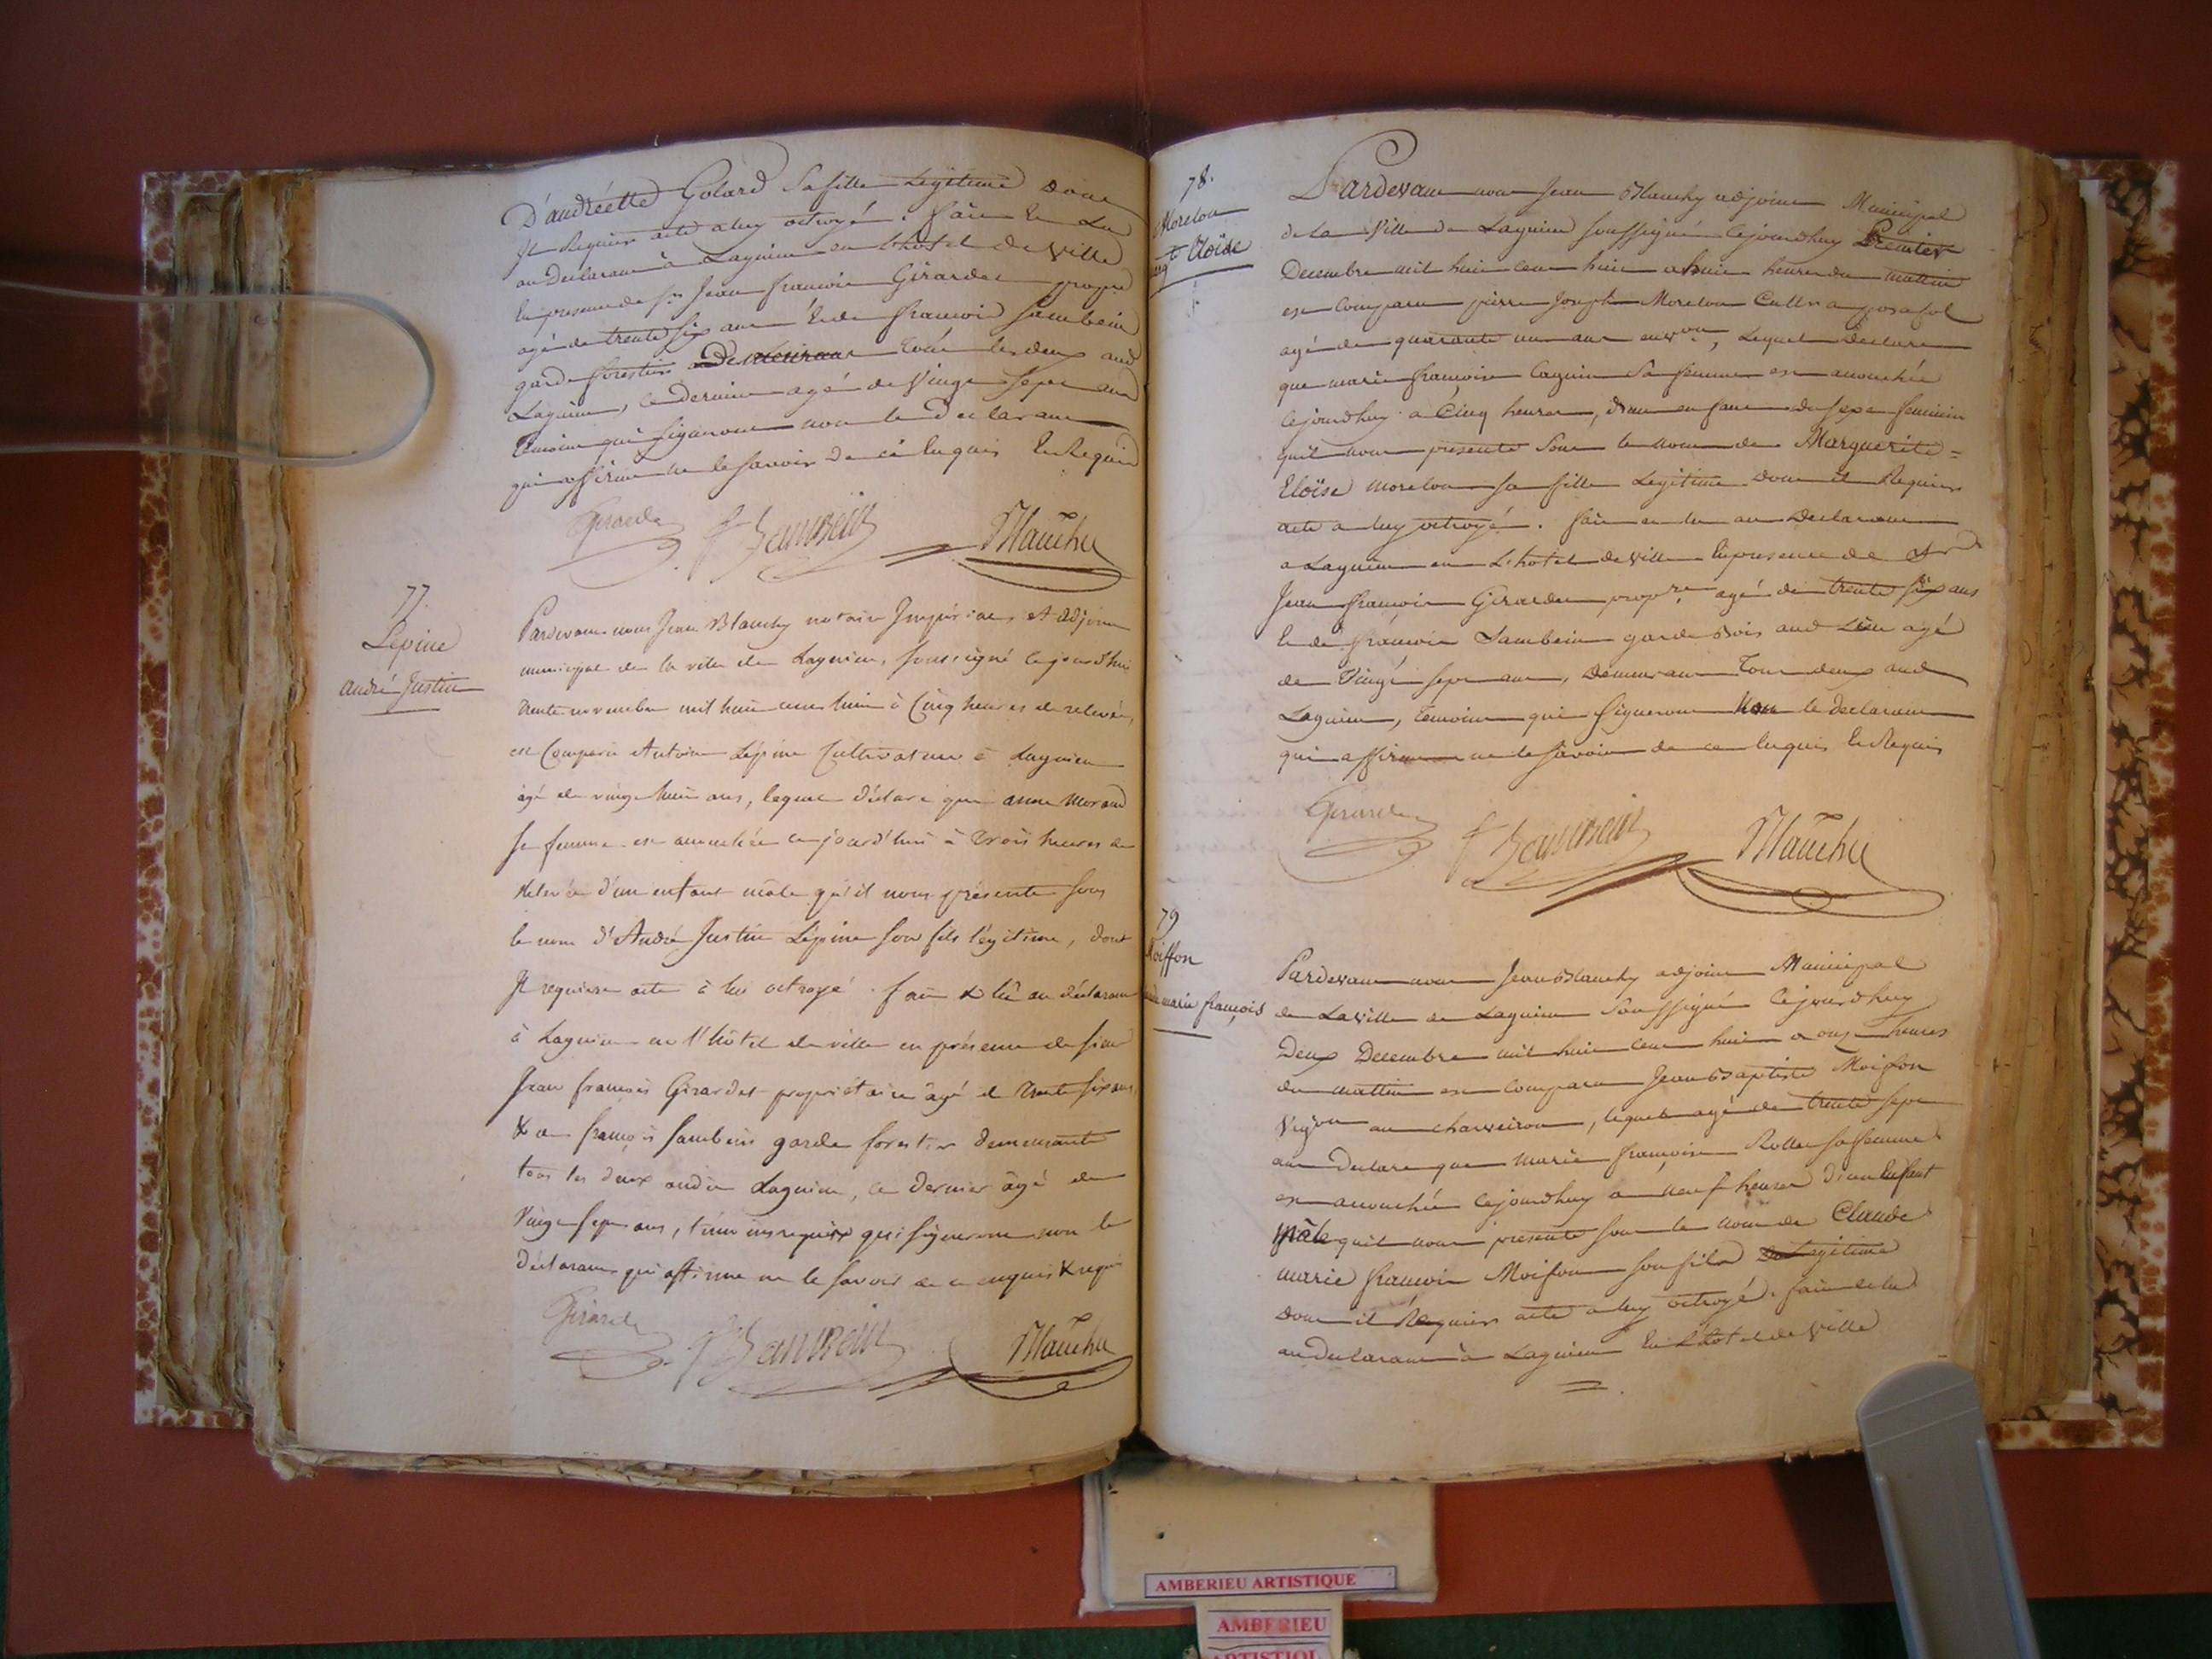 D'andréette Golard Sa fille Legitime dont
Il Requier acte a luy octroyé. fait Et Lu
au Declarant à Lagnieu en L'hotel de Ville
En presence de sr Jean francois Girardet propre
agé de trente six ans Et de francois Jambein
garde forestier Demeurant tous les deux aud
Lagnieu, ce dernier agé de Vingt sept ans
temoins qui signeront non le Declarant
qui affirme ne le savoir de ce Enquis Et Requis
Girardet
f Jambein
Blanchy
77.
Lépine
André Justin
Pardevant nous Jean Blanchy notaire Impérial et Adjoint
municipal de la ville de Lagnieu, soussigné cejourd'hui
trente novembre mil huit cent huit à Cinq heures de relevée,
est Comparu Antoine Lépine Cultivateur à Lagnieu
âgé de vingt huit ans, lequel déclare que anne Morand
sa femme est accouchée cejourd'hui à trois heures de
relevée d'un enfant mâle qu'il nous présente sous
le nom d'André Justin Lépine son fils légitime, dont
Il requiere acte à lui octroyé. fait & lû au déclarant
à Lagnieu en l'hôtel de ville en présence de sieur
Jean françois Girardet propriétaire âgé de trente six ans,
& de françois Jambein garde forestier demeurants
tous les deux audit Lagnieu, ce dernier âgé de
Vingt sept ans, témoins requis qui signeront non le
déclarant qui affirme ne le savoir de ce enquis & requis
Girardet
f Jambein
Blanchy
78.
Morelon
te Eloïse
Pardevant nous Jean Blanchy adjoint Municipal
de la Ville de Lagnieu soussigné cejourdhuy Premier
Decembre mil huit cent huit a huit heures du mattin
est Comparu pierre Joseph Morelon Cultr a posafol
agé de quarante un ans envon, Lequel Declare
que marie françoise Caguin Sa femme est accouchée
cejourdhuy a Cinq heures, d'un enfant du sexe feminin
quil nous presente Sous le nom de Marguerite =
Eloïse morelon sa fille Legitime dont il Requier
acte a luy octroyé. fait et lu au Declarant
a Lagnieu en L'hotel de ville En presence de Sr
Jean francois Girardet propre agé de trente six ans
Et de francois Jambein garde Bois aud Lieu agé
de Vingt sept ans, demeurant Tous deux aud
Lagnieu, temoins qui signeront Non le declarant
qui affirme ne le savoir de ce Enquis Et Requis
Girardet
f Jambein
Blanchy
79
Moiffon
marie françois
Pardevant nous Jean Blanchy adjoint Municipal
de La Ville de Lagnieu Soussigné Cejourdhuy
Deux Decembre mil huit cent huit a onze heures
du mattin est comparu Jean Baptiste Moiffon
Vigon au charveiron, lequel agé de trente sept
ans Declare que marie françoise Rollet sa femme
est accouchée cejourdhuy a neuf heures d'un Enfant
Mâle quil nous presente sous le nom de Claude
marie francois Moiffon son fils Legitime
dont il Requier acte a luy octroyé. fait et lu
au Declarant à Lagnieu En L'hotel de Ville
AMBERIEU ARTISTIQUE
AMBERIEU
ARTISTIQU